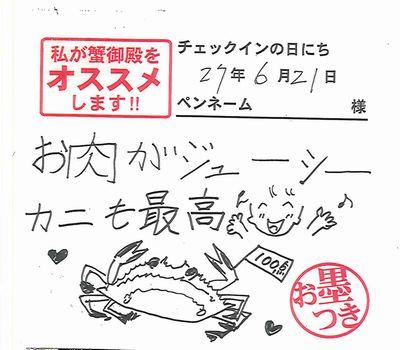 私が蟹御殿を
オススメ
します!!
チェックインの日にち
27年6月21日
ペンネーム 様
お肉がジューシー
カニも最高
100点
お墨つき